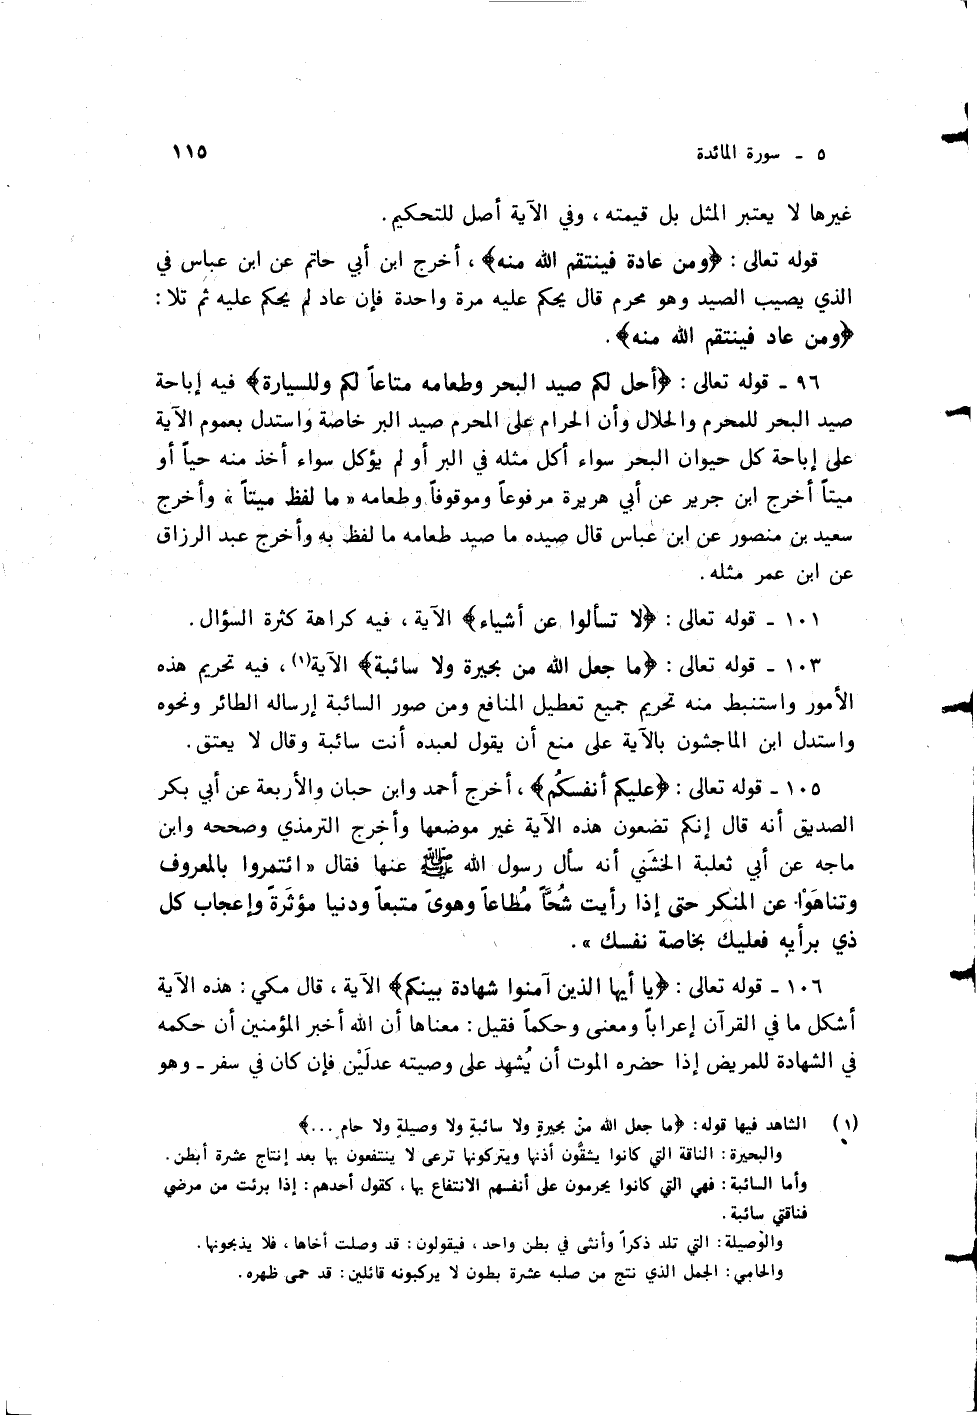 ٥ ـ سورة المائدة ١١٥
غيرها لا يعتبر المثل بل قيمته ، وفي الآية أصل للتحكيم .
قوله تعالى : ﴿ومن عادة فينتقم الله منه﴾ ، أخرج ابن أبي حاتم عن ابن عباس في
الذي يصيب الصيد وهو محرم قال يحكم عليه مرة واحدة فإن عاد لم يحكم عليه ثم تلا :
﴿ومن عاد فينتقم الله منه﴾ .
٩٦ ـ قوله تعالى : ﴿أحل لكم صيد البحر وطعامه متاعاً لكم وللسيارة﴾ فيه إباحة
صيد البحر للمحرم والحلال وأن الحرام على المحرم صيد البر خاصة واستدل بعموم الآية
على إباحة كل حيوان البحر سواء أكل مثله في البر أو لم يؤكل سواء أخذ منه حياً أو
ميتاً أخرج ابن جرير عن أبي هريرة مرفوعاً وموقوفاً وطعامه « ما لفظ ميتاً » وأخرج
سعيد بن منصور عن ابن عباس قال صيده ما صيد طعامه ما لفظ به وأخرج عبد الرزاق
عن ابن عمر مثله .
١٠١ ـ قوله تعالى : ﴿لا تسألوا عن أشياء﴾ الآية ، فيه كراهة كثرة السؤال .
١٠٣ ـ قوله تعالى : ﴿ما جعل الله من بحيرة ولا سائبة﴾ الآية(١) ، فيه تحريم هذه
الأمور واستنبط منه تحريم جميع تعطيل المنافع ومن صور السائبة إرساله الطائر ونحوه
واستدل ابن الماجشون بالآية على منع أن يقول لعبده أنت سائبة وقال لا يعتق .
١٠٥ ـ قوله تعالى : ﴿عليكم أنفسكُم﴾ ، أخرج أحمد وابن حبان والأربعة عن أبي بكر
الصديق أنه قال إنكم تضعون هذه الآية غير موضعها وأخرج الترمذي وصححه وابن
ماجه عن أبي ثعلبة الخشَني أنه سأل رسول الله ﷺ عنها فقال « ائتمروا بالمعروف
وتناهَوْا عن المنكر حتى إذا رأيت شُحَّاً مُطاعاً وهوىً متبعاً ودنيا مؤثَرةً وإعجاب كل
ذي برأيه فعليك بخاصة نفسك » .
١٠٦ ـ قوله تعالى : ﴿يا أيها الذين آمنوا شهادة بينكم﴾ الآية ، قال مكي : هذه الآية
أشكل ما في القرآن إعراباً ومعنى وحكماً فقيل : معناها أن الله أخبر المؤمنين أن حكمه
في الشهادة للمريض إذا حضره الموت أن يُشهِد على وصيته عدلَيْن فإن كان في سفر ـ وهو
(١) الشاهد فيها قوله : ﴿ما جعل الله منْ بحيرةٍ ولا سائبةٍ ولا وصيلةٍ ولا حام ...﴾
والبحيرة : الناقة التي كانوا يشقُّون أذنها ويتركونها ترعى لا ينتفعون بها بعد إنتاج عشرة أبطن .
وأما السائبة : فهي التي كانوا يحرمون على أنفسهم الانتفاع بها ، كقول أحدهم : إذا برئت من مرضي
فناقتي سائبة .
والوصيلة : التي تلد ذكراً وأنثى في بطن واحد ، فيقولون : قد وصلت أخاها ، فلا يذبحونها .
والحامي : الجمل الذي نتج من صلبه عشرة بطون لا يركبونه قائلين : قد حمى ظهره .